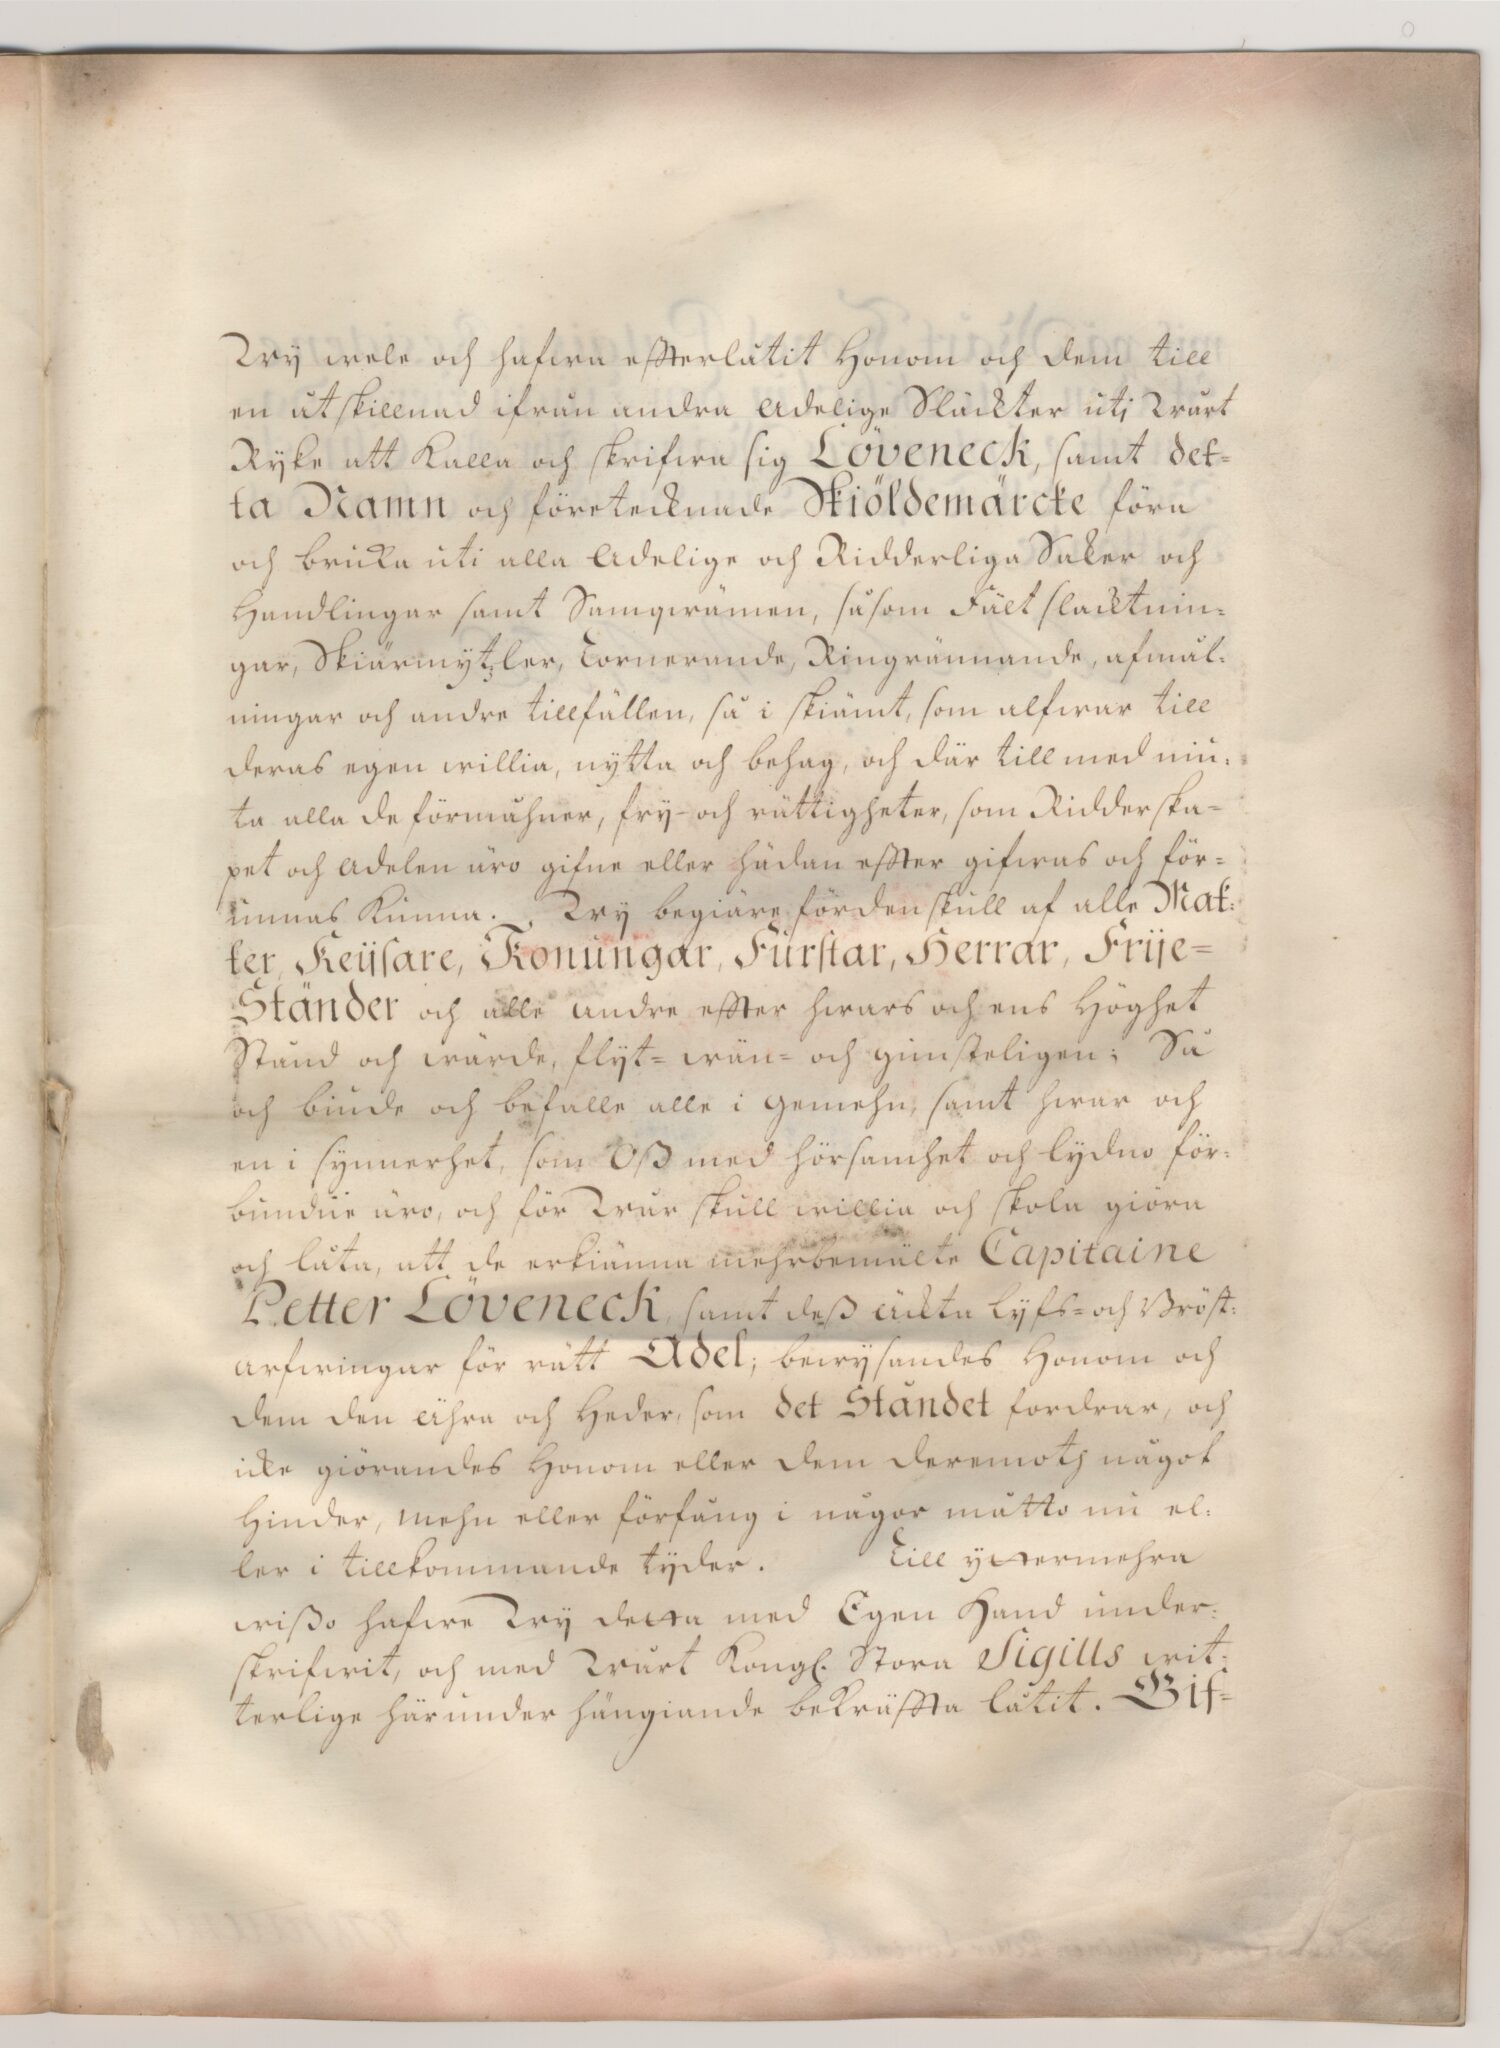 Wy wele och hafwa effterlåtit Honom och dem till
en åtskillnad ifrån andra Adelige Släckter uti Wårt
Ryke att Kalla och skrifwa sig Löveneck, samt det-
ta Namn och företecknade Skiöldemärcke föra
och bruka uti alla Adelige och Ridderliga Saker och
Handlingar samt Samqwämen, såsom Fält slacktnin-
gar, Skiärmytzler, Tornerande, Ringrännande, afmål-
ningar och andre tillfällen, så i skiämt, som alfwar till
deras egen willia, nytta och behag, och där till med niu-
ta alla de förmåhner, fry- och rättigheter, som Ridderska-
pet och Adelen äro gifne eller hädan effter gifwas och för-
unnas kunna. Wy begiäre fördenskull af alle Mak-
ter, Keijsare, Konungar, Fürstar, Herrar, Frije-
Ständer och alle andre effter hwars och ens Höghet
Stånd och wärde, flyt- wän- och gunsteligen; Så
och biude och befalle alle i gemehn, samt hwar och
en i synnerhet, som Oß med hörsamhet och lydno för-
bundne äro, och för Wår skull willia och skola giöra
och låta, att de erkiänna mehrbemälte Capitaine
Petter Löveneck, samt deß ächta Lyfs- och Bröst-
arfwingar för rätt Adel; bewysandes Honom och
dem den ähra och Heder, som det Ståndet fordrar, och
icke giörandes Honom eller dem deremoth något
Hinder, Mehn eller förfång i någor måtto nu el-
ler i tillkommande tyder. Till yttermehra
wißo hafwe Wy detta med Egen Hand under-
skrifwit, och med Wårt Kongl. Stora Sigills wit-
terlige härunder hängiande bekräffta låtit. Gif-